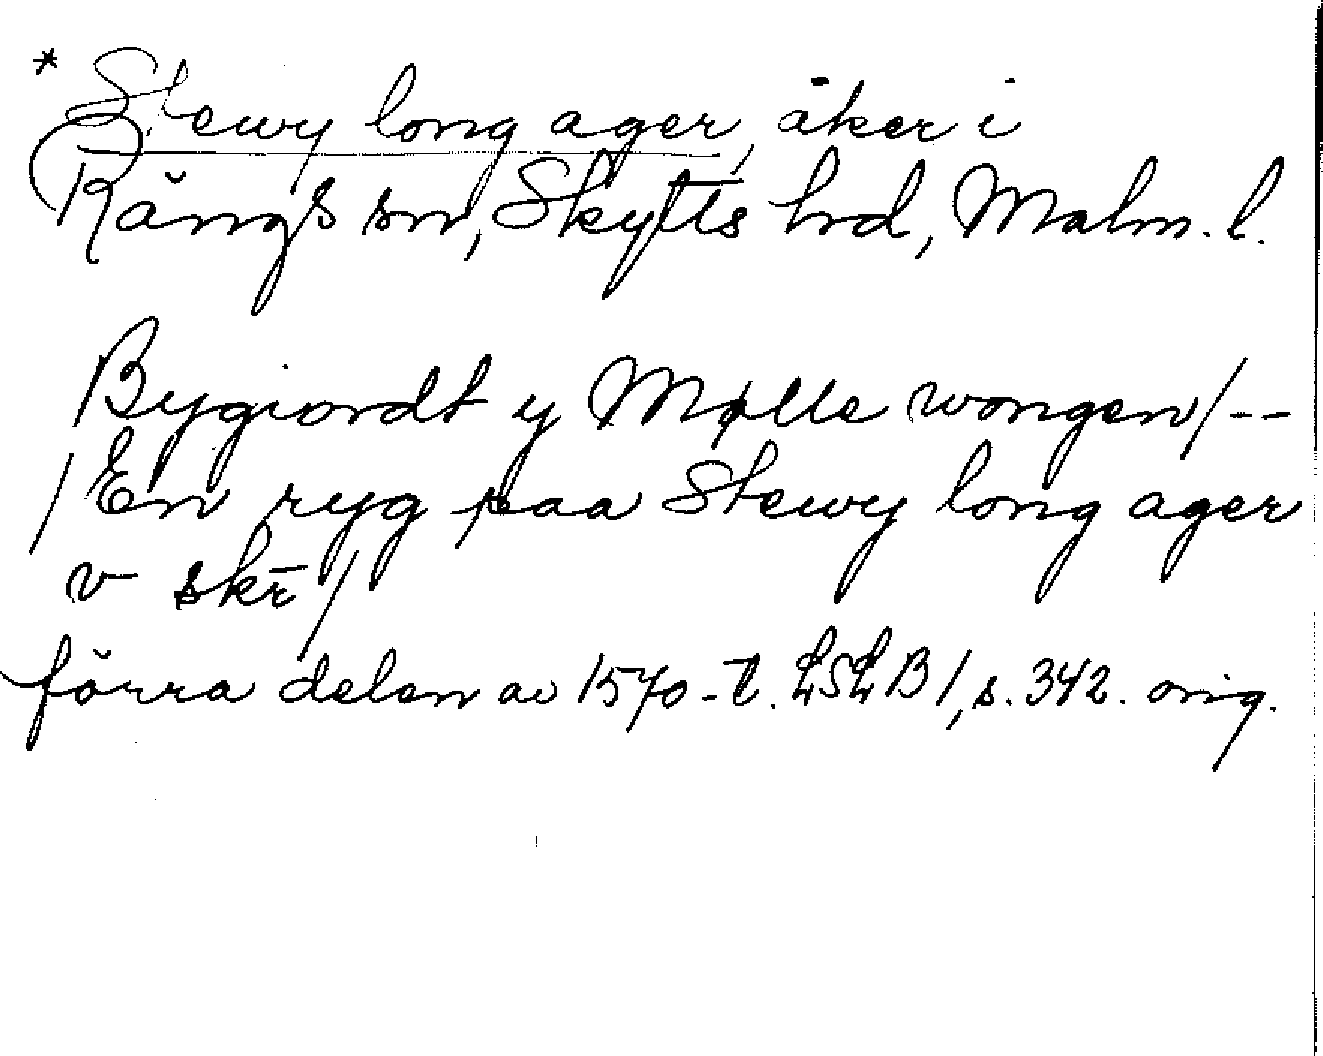 * Stewy long ager, åker i
Rängs sn, Skytts hrd, Malm. l.
Bygiordt y Mølle wongen/--
/En ryg paa Stewy long ager
v skr̄/
förra delen av 1570-t. LSLB 1, s. 342. orig.